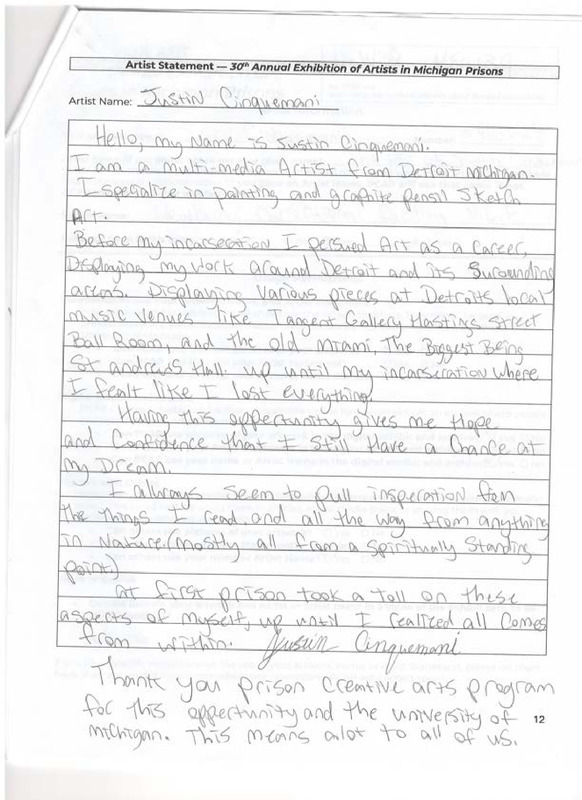 Artist Statement — 30th Annual Exhibition of Artists in Michigan Prisons
Artist Name: Justin Cinquemani
Hello, my Name is Justin Cinquemani.
I am a multi-media Artist from Detroit Michigan.
I specialize in painting and graphite pensil Sketch
Art.
Before my incarseration I persued Art as a Career,
Displaying my work around Detroit and its Surounding
areas. Displaying various pieces at Detroits local
music venues like Tangent Gallery Hastings Street
Ball Room, and the old Miami, The Biggest Being
St andrews Hall. up until my incarseration where
I fealt like I lost everything.
Having this oppertunity gives me Hope
and Confidence that I Still Have a Chance at
my Dream.
I allways Seem to pull insperation from
the things I read, and all the way from anything
in Nature. (mostly all from a Spiritually Standing
point)
at first prison took a toll on these
aspects of myself, up until I realized all Comes
from within. Justin Cinquemani
Thank you prison Creative arts program
for this oppertunity and the university of
michigan. This means alot to all of us.
12